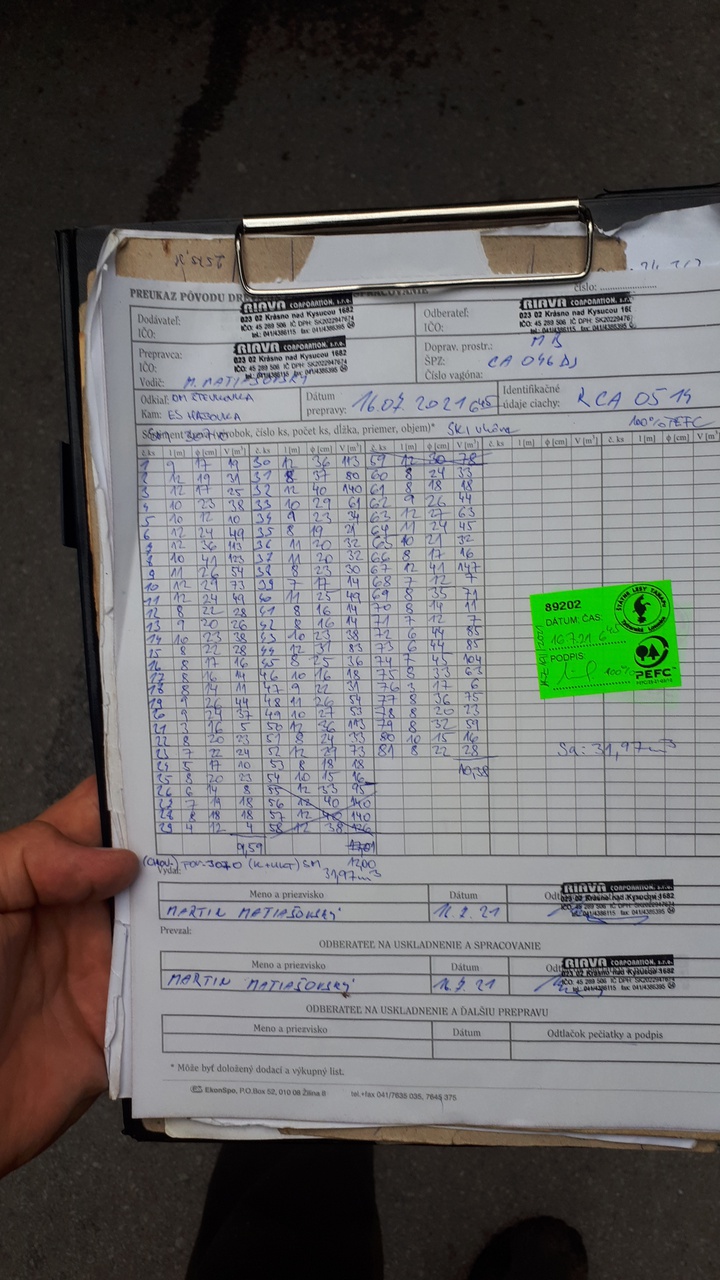 PREUKAZ PÔVODU
číslo:
Dodávateľ:
IČO:
RIAVA CORPORATION, s.r.o.
023 02 Krásno nad Kysucou 1682
IČO: 45 289 506 IČ DPH: SK2022947674
tel.: 041/4386115 fax: 041/4385395
Odberateľ:
IČO:
RIAVA CORPORATION, s.r.o.
023 02 Krásno nad Kysucou 168
IČO: 45 289 506 IČ DPH: SK20229476
Prepravca:
IČO:
RIAVA CORPORATION, s.r.o.
023 02 Krásno nad Kysucou 1682
IČO: 45 289 506 IČ DPH: SK2022947674
Vodič: M. MATIAŠOVSKÝ
Doprav. prostr.: MB
ŠPZ: CA 046 DJ
Číslo vagóna:
Odkiaľ:
Kam: ES
Dátum
prepravy: 16.07.2021 6 45
Identifikačné
údaje ciachy: RCA 0514
100% PEFC
výrobok, číslo ks, počet ks, dĺžka, priemer, objem)*
č. ks l [m] ϕ (cm) V [m³] č. ks l [m] ϕ (cm) V [m³] č. ks l [m] ϕ (cm) V [m³] č. ks l [m] ϕ (cm) V [m³] č. ks l [m]
1 9 17 19 30 12 36 113 59 12 30 78
2 12 19 31 31 8 37 80 60 8 24 33
3 12 17 25 32 12 40 140 61 8 18 18
4 10 23 38 33 10 29 61 62 9 26 44
5 10 12 10 34 9 23 34 63 12 27 63
6 12 24 49 35 8 19 21 64 11 24 45
7 12 36 113 36 11 20 32 65 10 21 32
8 10 41 123 37 11 20 32 66 8 17 16
9 11 26 54 38 8 23 30 67 12 41 147
10 12 29 73 39 7 17 14 68 7 12 7
11 12 24 49 40 11 25 49 69 8 35 71
12 8 22 28 41 8 16 14 70 8 14 11
13 9 20 26 42 8 16 14 71 7 12 7
14 10 23 38 43 10 23 38 72 6 44 85
15 8 22 28 44 12 31 83 73 6 44 85
16 8 17 16 45 8 25 36 74 7 45 104
17 8 16 14 46 10 16 18 75 8 33 63
18 8 14 11 47 9 22 31 76 3 17 6
19 9 26 44 48 11 26 54 77 8 36 75
20 9 24 37 49 10 27 53 78 8 20 23
21 3 16 5 50 12 36 113 79 8 32 59
22 8 20 23 51 8 24 33 80 10 15 16
23 7 22 24 52 12 29 73 81 8 22 28
24 5 17 10 53 8 18 18
25 8 20 23 54 10 15 16
26 6 14 8 55 12 33 95
27 7 19 18 56 12 40 140
28 8 18 18 57 12 40 140
29 4 12 4 58 12 38 126
9,59
10,38
12,00
31,97m³
Sa: 31,97m³
89202
ŠTÁTNE LESY TANAPU
DÁTUM: ČAS:
16.7.21 6 45
PODPIS:
100%
PEFC
Vydal:
Meno a priezvisko Dátum
MARTIN MATIAŠOVSKÝ
RIAVA CORPORATION, s.r.o.
023 02 Krásno nad Kysucou 1682
Prevzal:
ODBERATEĽ NA USKLADNENIE A SPRACOVANIE
Meno a priezvisko Dátum
MARTIN MATIAŠOVSKÝ
RIAVA CORPORATION, s.r.o.
023 02 Krásno nad Kysucou 1682
ODBERATEĽ NA USKLADNENIE A ĎALŠIU PREPRAVU
Meno a priezvisko Dátum Odtlačok pečiatky a podpis
* Môže byť doložený dodací a výkupný list.
EkonSpo, P.O.Box 52, 010 08 Žilina 8 tel.+fax 041/7635 035, 7645 375